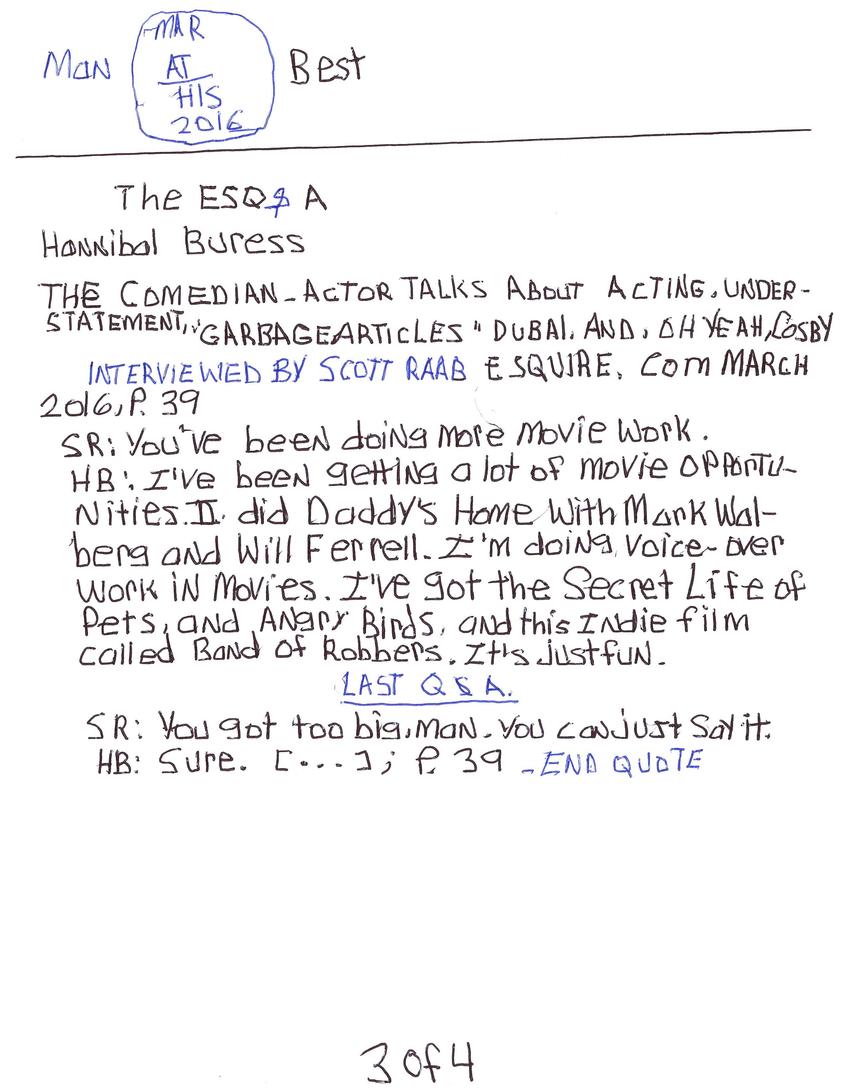 MAR
Man AT Best
HIS
2016
The ESQ& A
Hannibal Buress
THE COMEDIAN-ACTOR TALKS ABOUT ACTING, UNDER-
STATEMENT, "GARBAGE ARTICLES" DUBAI, AND, OH YEAH, COSBY
INTERVIEWED BY SCOTT RAAB ESQUIRE. COM MARCH
2016, P. 39
SR: You've been doing more movie work.
HB: I've been getting a lot of movie opportu-
nities. II did Daddy's Home with Mark Wal-
berg and Will Ferrell. I'm doing voice-over
work in movies. I've got the Secret Life of
Pets, and Angry Birds, and this Indie film
called Band of Robbers. It's just fun.
LAST Q & A.
SR: You got too big, man. You can just say it.
HB: Sure. [...]; P. 39 - END QUOTE
3 of 4